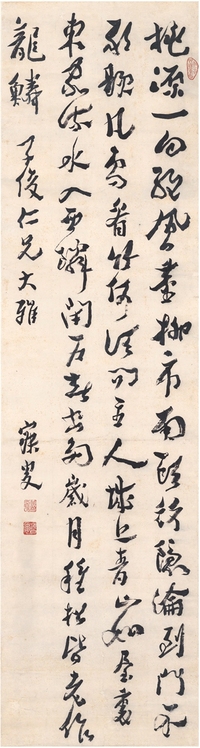 桃源一向絕風塵柳市南頭訪隱淪到門不
敢題凡鳥看竹何須問主人城上青山如屋裏
東家流水入西鄰閉戶著書多歲月種松皆老作
龍鱗 子俊仁兄大雅 寐叟